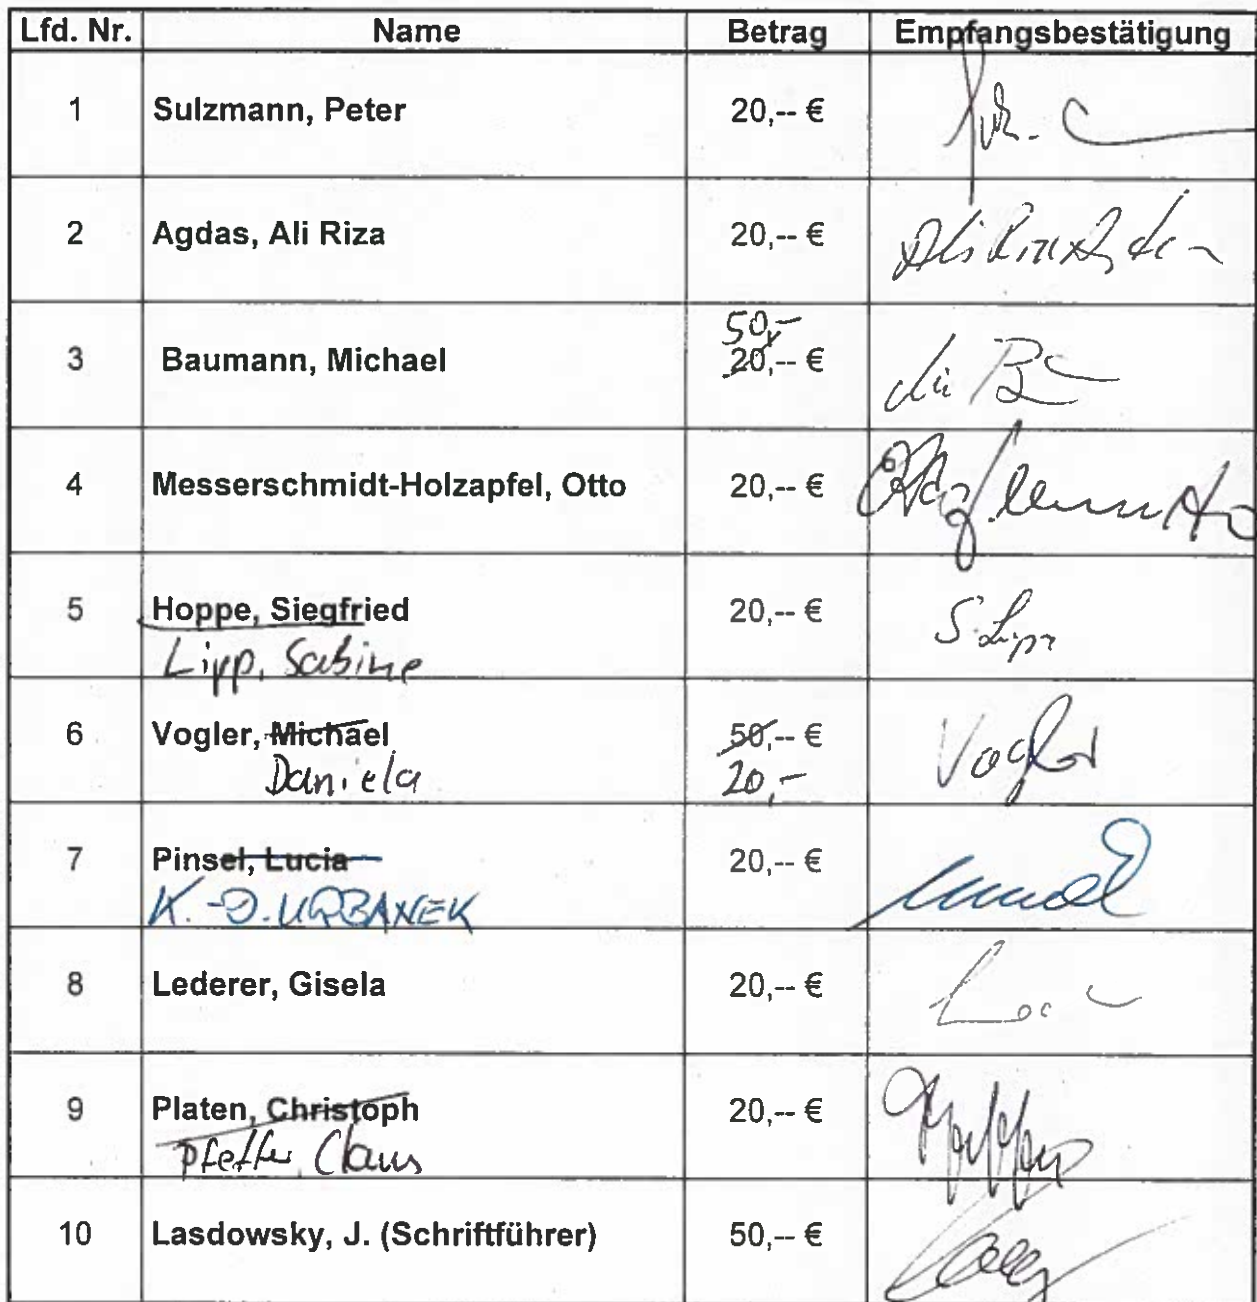 Lfd. Nr. Name Betrag Empfangsbestätigung
1 Sulzmann, Peter 20,-- €
2 Agdas, Ali Riza 20,-- €
50,-
3 Baumann, Michael 20,-- €
4 Messerschmidt-Holzapfel, Otto 20,-- €
5 Hoppe, Siegfried 20,-- € S. Lipp
Lipp, Sabine
6 Vogler, Michael 50,-- € Vogler
Daniela 20,-
7 Pinsel, Lucia 20,-- €
K.-D. URBANEK
8 Lederer, Gisela 20,-- €
9 Platen, Christoph 20,-- €
Pfeffer, Claus
10 Lasdowsky, J. (Schriftführer) 50,-- €